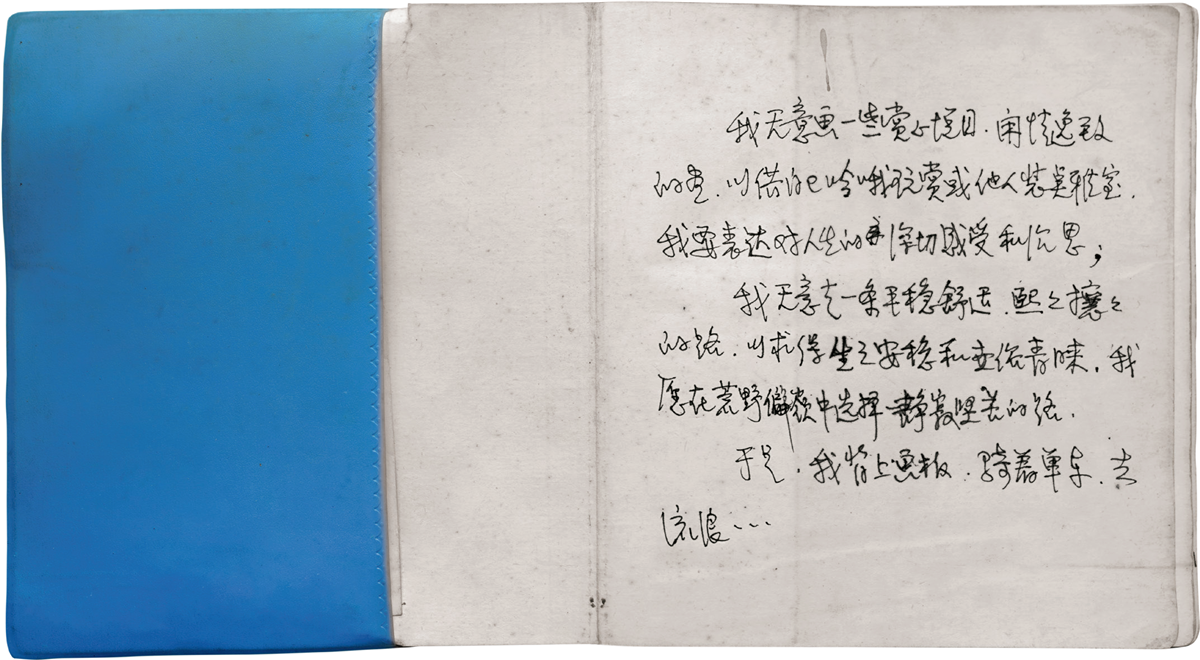 我无意画一些赏心悦目、闲情逸致
的画，以供自己吟哦玩赏或他人装点雅室，
我要表达对人生的深切感受和沉思；
我无意走一条平稳舒适、熙々攘々
的路，以求得生之安稳和世俗青睐，我
愿在荒野偏颓中选择静寂坚苦的路。
于是，我背上画板，骑着单车，去
流浪...